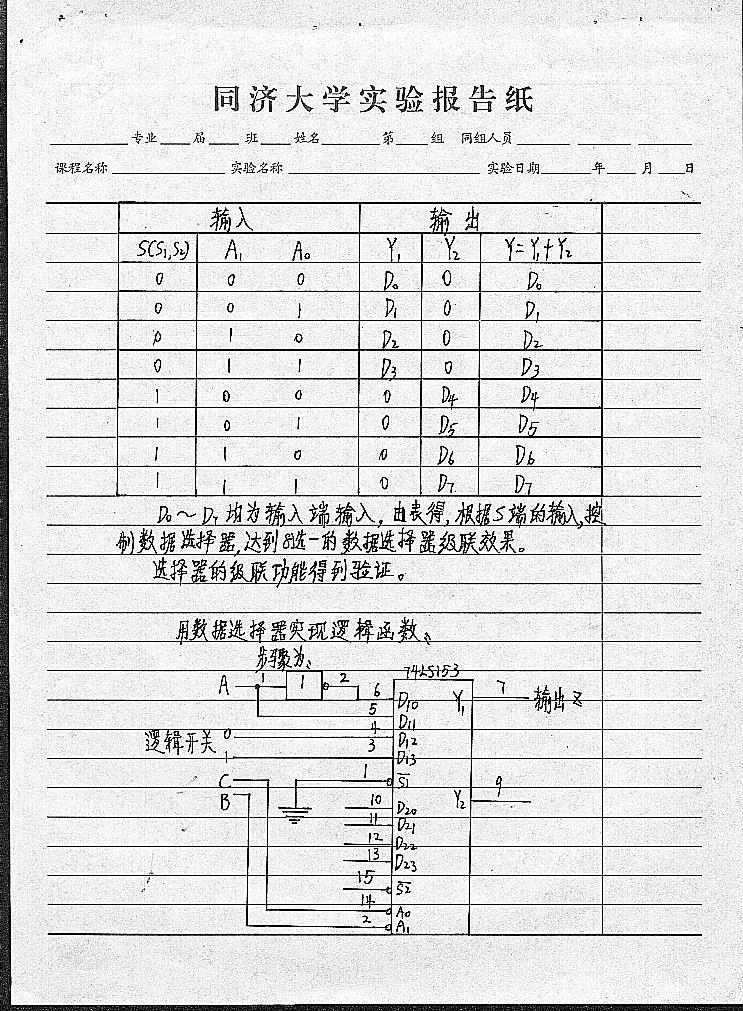 同济大学实验报告纸
专业 届 班 姓名 第 组 同组人员
课程名称 实验名称 实验日期 年 月 日
输入 输出
S(S₁,S₂) A₁ A₀ Y₁ Y₂ Y=Y₁+Y₂
0 0 0 D₀ 0 D₀
0 0 1 D₁ 0 D₁
0 1 0 D₂ 0 D₂
0 1 1 D₃ 0 D₃
1 0 0 0 D₄ D₄
1 0 1 0 D₅ D₅
1 1 0 0 D₆ D₆
1 1 1 0 D₇ D₇
D₀~D₇均为输入端输入，由表得，根据S端的输入，控
制数据选择器，达到8选一的数据选择器级联效果。
选择器的级联功能得到验证。
用数据选择器实现逻辑函数、
步骤为、
74LS153
A 1 1 2 6 D10 Y₁ 7 输出Z
5 D11
逻辑开关 0 4 D12
1 3 D13
C 1 S̅1̅
B
10 D20 Y₂ 9
11 D21
12 D22
13 D23
15 S̅2̅
14 A₀
2 A₁